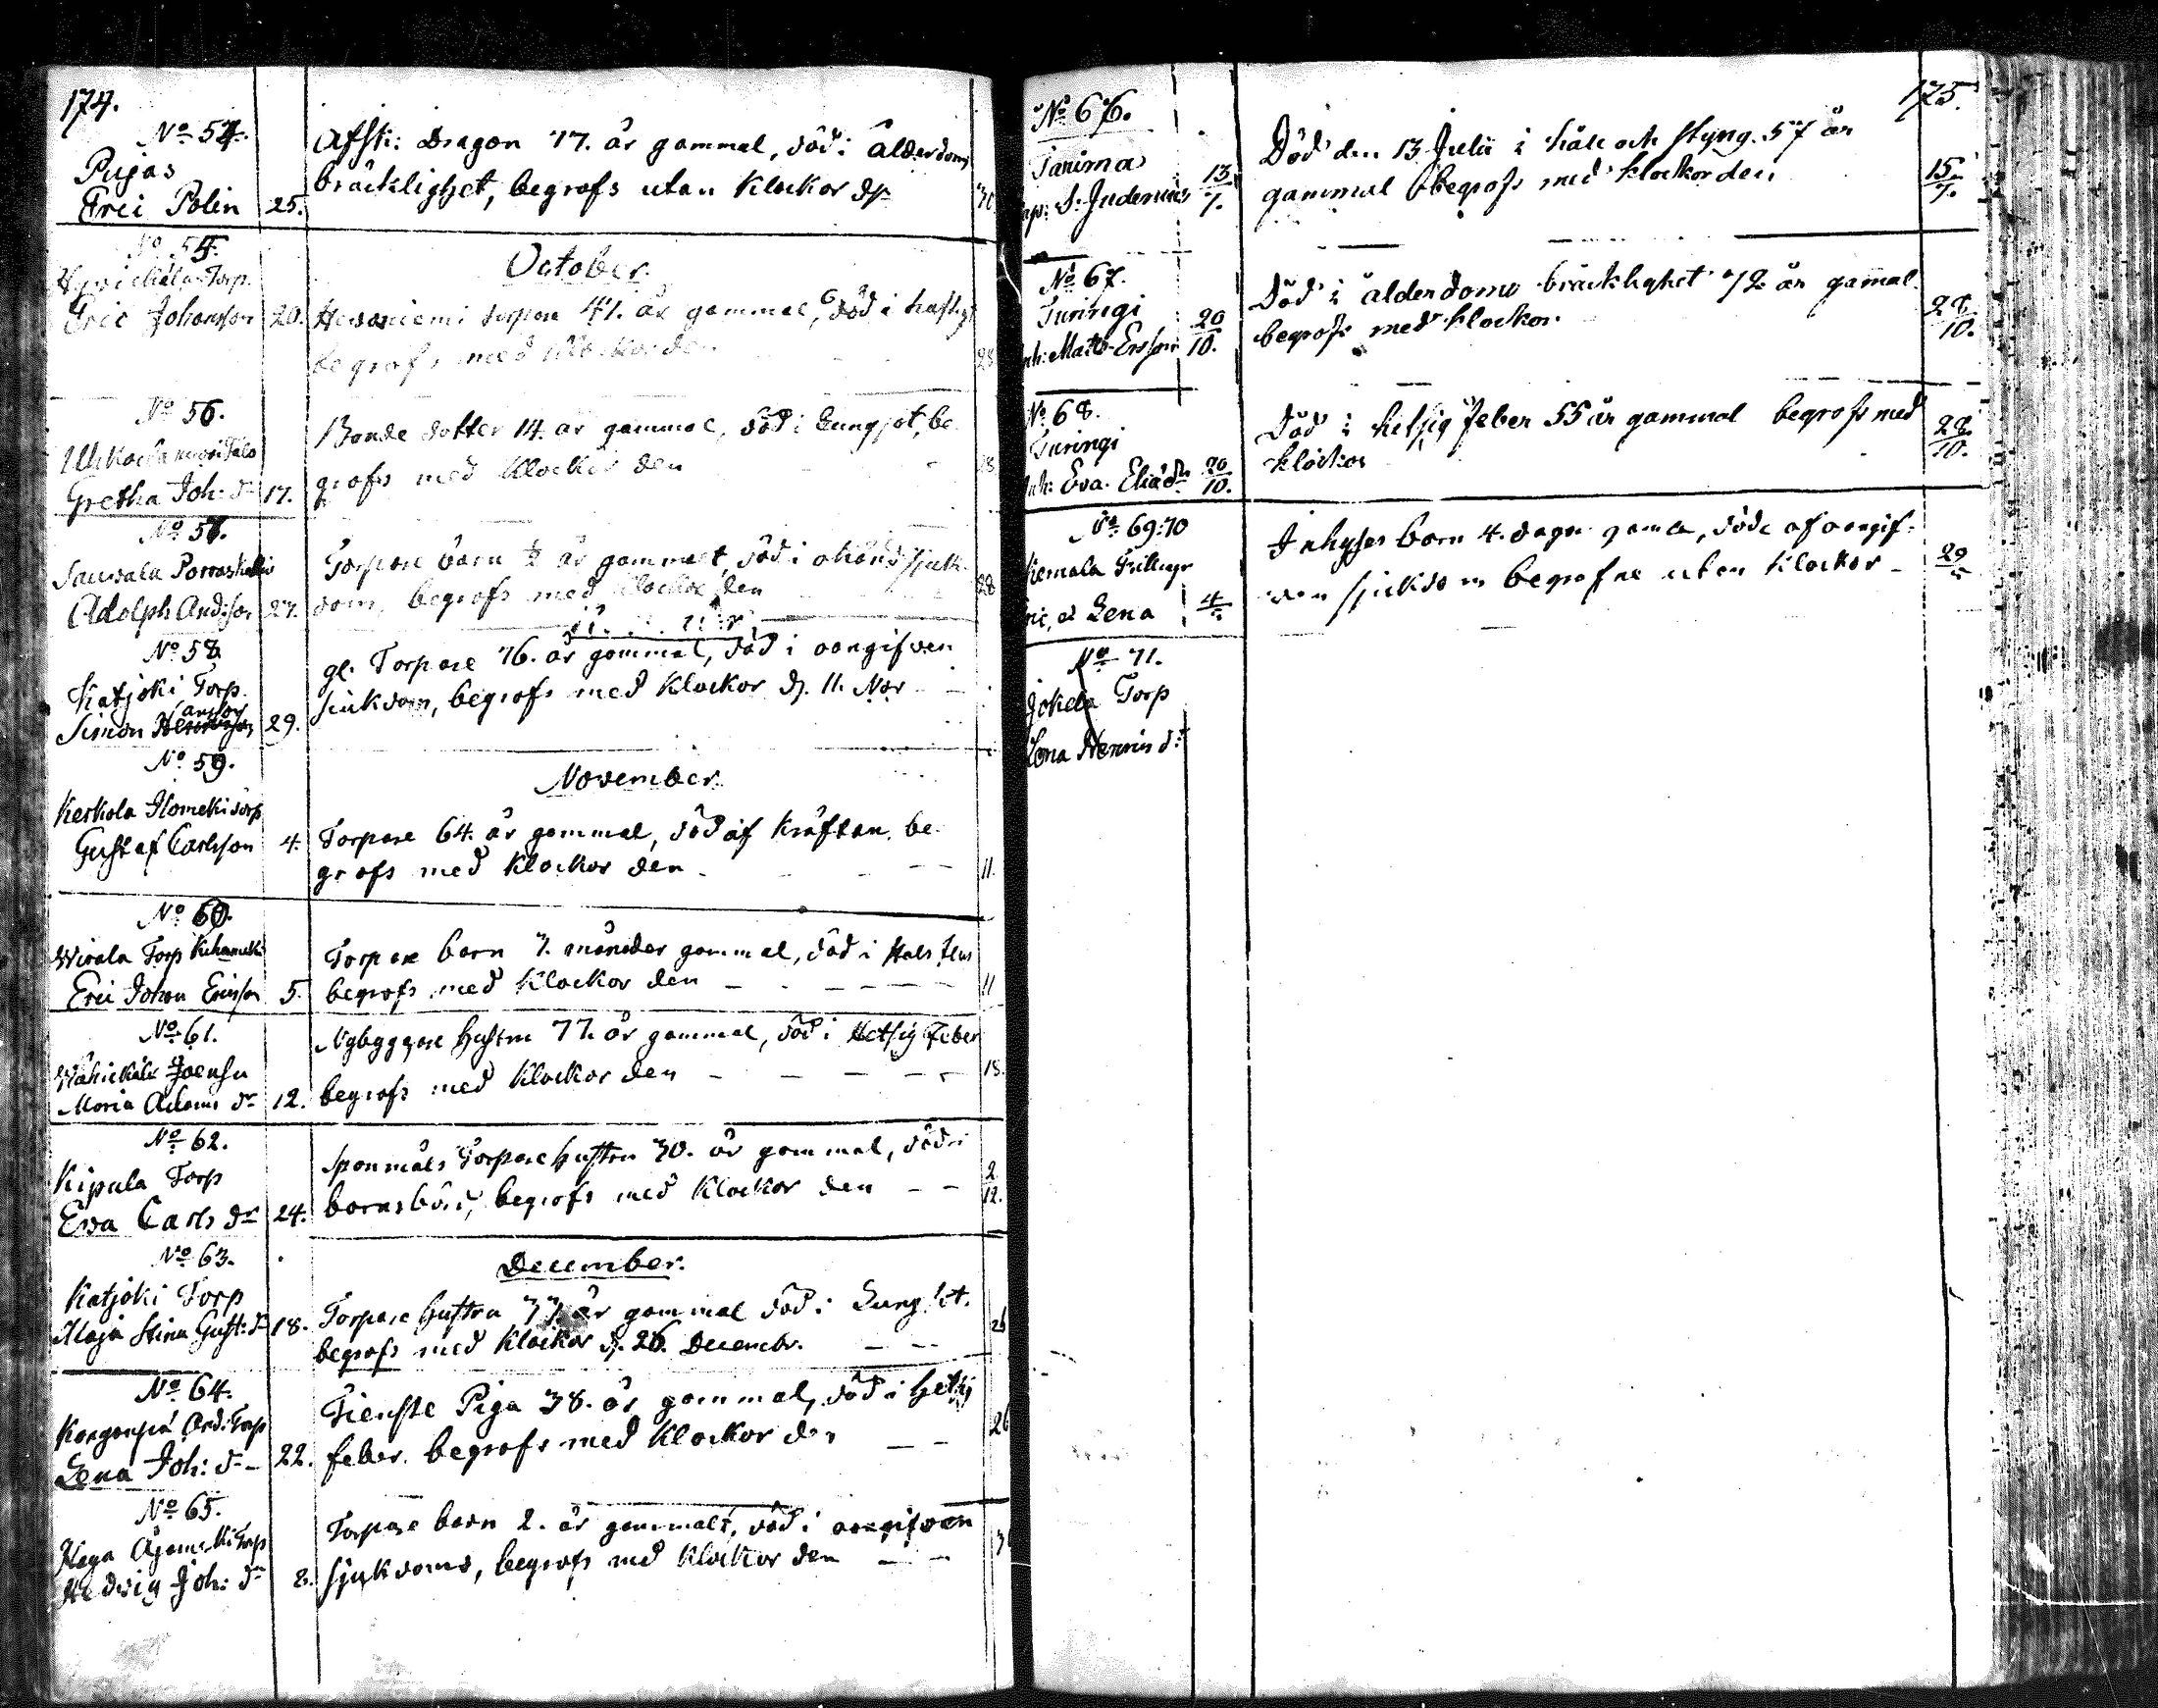 174.
No 54.
Pujas
Eric Polin 25.
Afsk: Dragon 77. år gammal, död i ålderdoms
bräcklighet, begrofs utan Klockor d. 30
October.
Eric Johansson 20.
torpare 41. år gammal, död i
begrofs med Klockor den 28
No 56.
Gretha Joh: dr 17.
Bonde dotter 14. år gammal, död i Lungsot, be
grofs med Klockor den
Adolph And:son 27.
Torpare barn ½ år gammalt, död i okänd sjuk
dom, begrofs med Klockor den 28
No 58
Katjoki Torp.
Simon 29.
gl. Torpare 76. år gammal, död i oangifven
sjukdom, begrofs med Klockor d. 11. Nov
No 59.
November.
Keskola Torp
Gustaf Carlsson 4.
Torpare 64. år gammal, död af Kräftan. be
grofs med Klockor den 11.
No 60.
Wirala Torp
Eric Johan Ericsson 5.
Torpare barn 7. månader gammal, död i Hals flus
begrofs med Klockor den 11
No 61.
Maria Adams dr 12.
Nybyggare hustru 77. år gammal, död i Hetsig Feber
begrofs med Klockor den 18.
No 62.
Kipula Torp
Eva Carls dr 24.
Spanmåls Torpare hustru 30. år gammal, död i
barnsbörd, begrofs med Klockor den 2/12.
No 63.
December.
Katjoki Torp
Maja Stina Gust: dr 18.
Torpare hustru 77. år gammal död i Lungsot.
begrofs med Klockor d. 26. Decembr. 26
No 64.
Lena Joh: dr 22.
Tienste Piga 38. år gammal, död i hetsig
feber. begrofs med Klockor den 26
No 65.
Hedvig Joh: dr 8.
Torpare barn 2. år gammalt, död i oangifven
sjukdoms, begrofs med Klockor den
175.
No 66.
Tanima
13/7.
Död den 13 Julii i håll och styng. 57 år
gammal begrofs med klockor den 15/7.
No 67.
Turingi
Matts Ersson 20/10.
Död i ålderdoms bräcklighet 72 år gamal.
begrofs med klockor. 28/10.
No 68.
Turingi
Eva Eliædr 20/10.
Död i hetsig feber 55 år gammal begrofs med
klockor 28/10.
No 69:70
Lena 4
Inhyses barn 4. dagar gamla, döde af oangif-
ven sjukdom begrofne utan klockor 29
No 71.
Jokela Torp
Lena Henrics dr